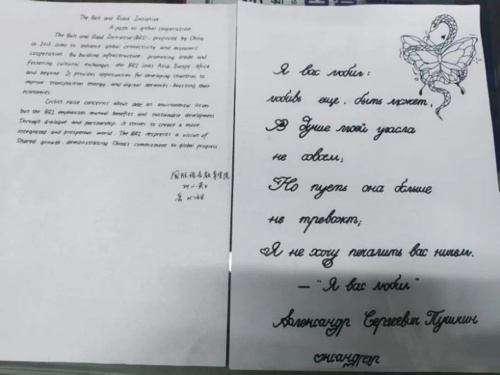 The Belt and Road Initiative
A path to global cooperation
The Belt and Road Initiative (BRI), proposed by China
in 2013, aims to enhance global connectivity and economic
cooperation. By building infrastructure, promoting trade and
fostering cultural exchanges, the BRI links Asia, Europe, Africa
and beyond. It provides opportunities for developing countries to
improve transportation, energy, and digital networks, boosting their
economies.
Critics raise concerns about debt and environmental issues,
but the BRI emphasizes mutual benefits and sustainable development
Through dialogue and partnership, it strives to create a more
integrated and prosperous world. The BRI represents a vision of
shared growth, demonstrating China's commitment to global progress.
国际语言教育学院
Я вас любил:
любовь ещё, быть может,
В душе моей угасла
не совсем;
Но пусть она больше
не тревожит;
Я не хочу печалить вас ничем.
— "Я вас любил"
Александр Сергеевич Пушкин